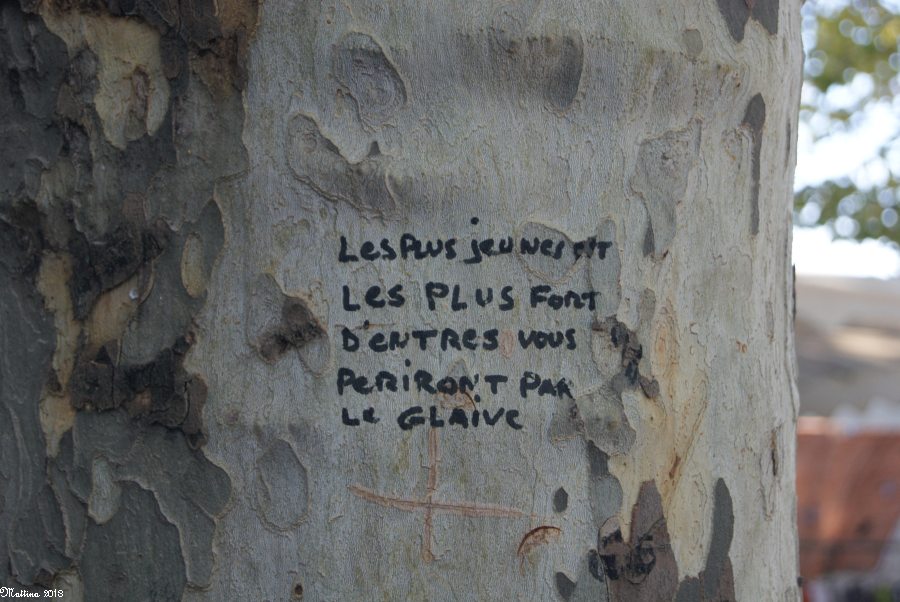 Les Plus jeunes et
Les PLUS FORT
D'ENTRES VOUS
PERIRONT PAR
Le GLAIVE
Mattina 2018